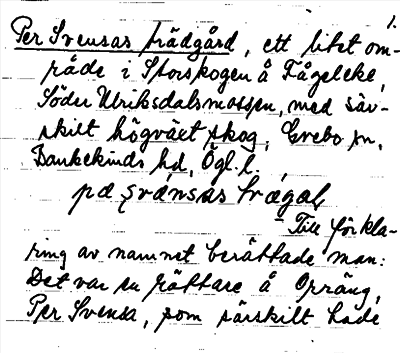 1.
Per Svensas trädgård, ett litet om-
råde i Storskogen å Fågeleke,
Söder Ulriksdalsmossen, med sär-
skilt högväxt skog, Grebo sn,
Bankekinds hd, Ögl.
pæ svænsas trægaḷ
Till förkla-
ring av namnet berättade man:
Det var en rättare å Orräng,
Per Svensa, som särskilt hade